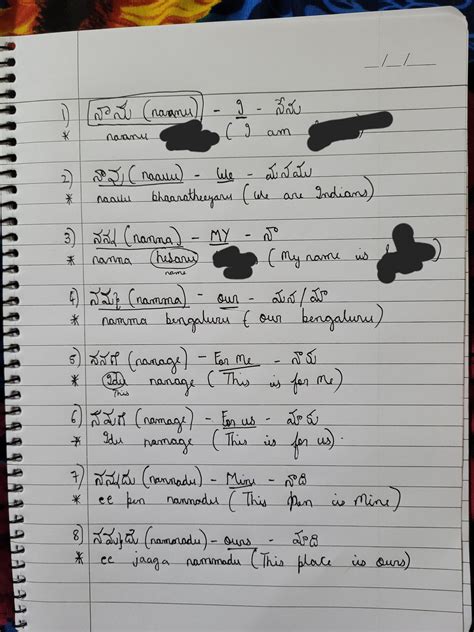 _/_/_
1) ನಾನು (naanu) - I - నేను
* naanu ( I am
2) ನಾವು (naavu) - We - మనము
* naavu bhaaratheeyaru (We are Indians)
3) ನನ್ನ (nanna) - MY - నా
* nanna hesaru ( My name is
name
4) ನಮ್ಮ (namma) - our - మన/మా
* namma bengaluru ( our bengaluru)
5) ನನಗೆ (nanage) - For Me - నాకు
* Idu nanage ( This is for me)
This
6) ನಮಗೆ (namage) - For us - మాకు
* Idu namage ( This is for us).
7) ನನ್ನದು (nannadu) - Mine - నాది
* ee pen nannadu ( This Pen is Mine)
8) ನಮ್ಮದು (nammadu) - ours - మాది
* ee jaaga nammadu (This place is ours)